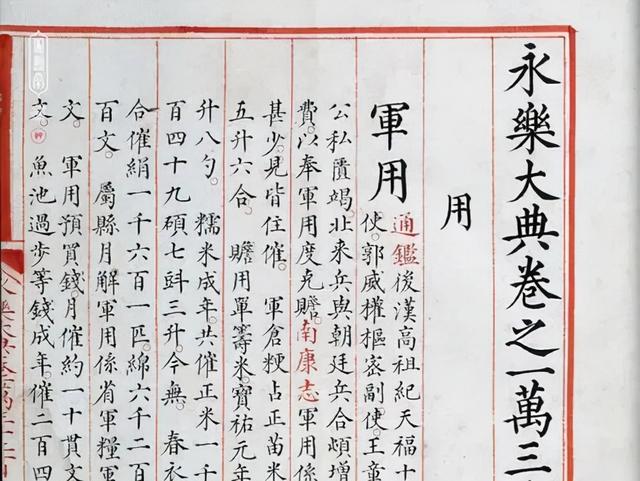 永樂大典卷之一萬三
用
軍用
通鑑後漢高祖紀天福十
使郭威權樞密副使王章
公私匱竭北来兵與朝廷兵合頓增
費以奉軍用度克贍南康志軍用係
甚少見皆住催 軍倉粳占正苗米
五升六合 贍用單籌米寳祐元年
升八勺 糯米成年共催正米一千
百四十九碩七㪷三升今無 春衣
合催絹一千六百一匹綿六千二百
百文 屬縣月解軍用係省軍糧軍
文 軍用預買錢月催約一十貫文
文 魚池過步等錢成年催二百四